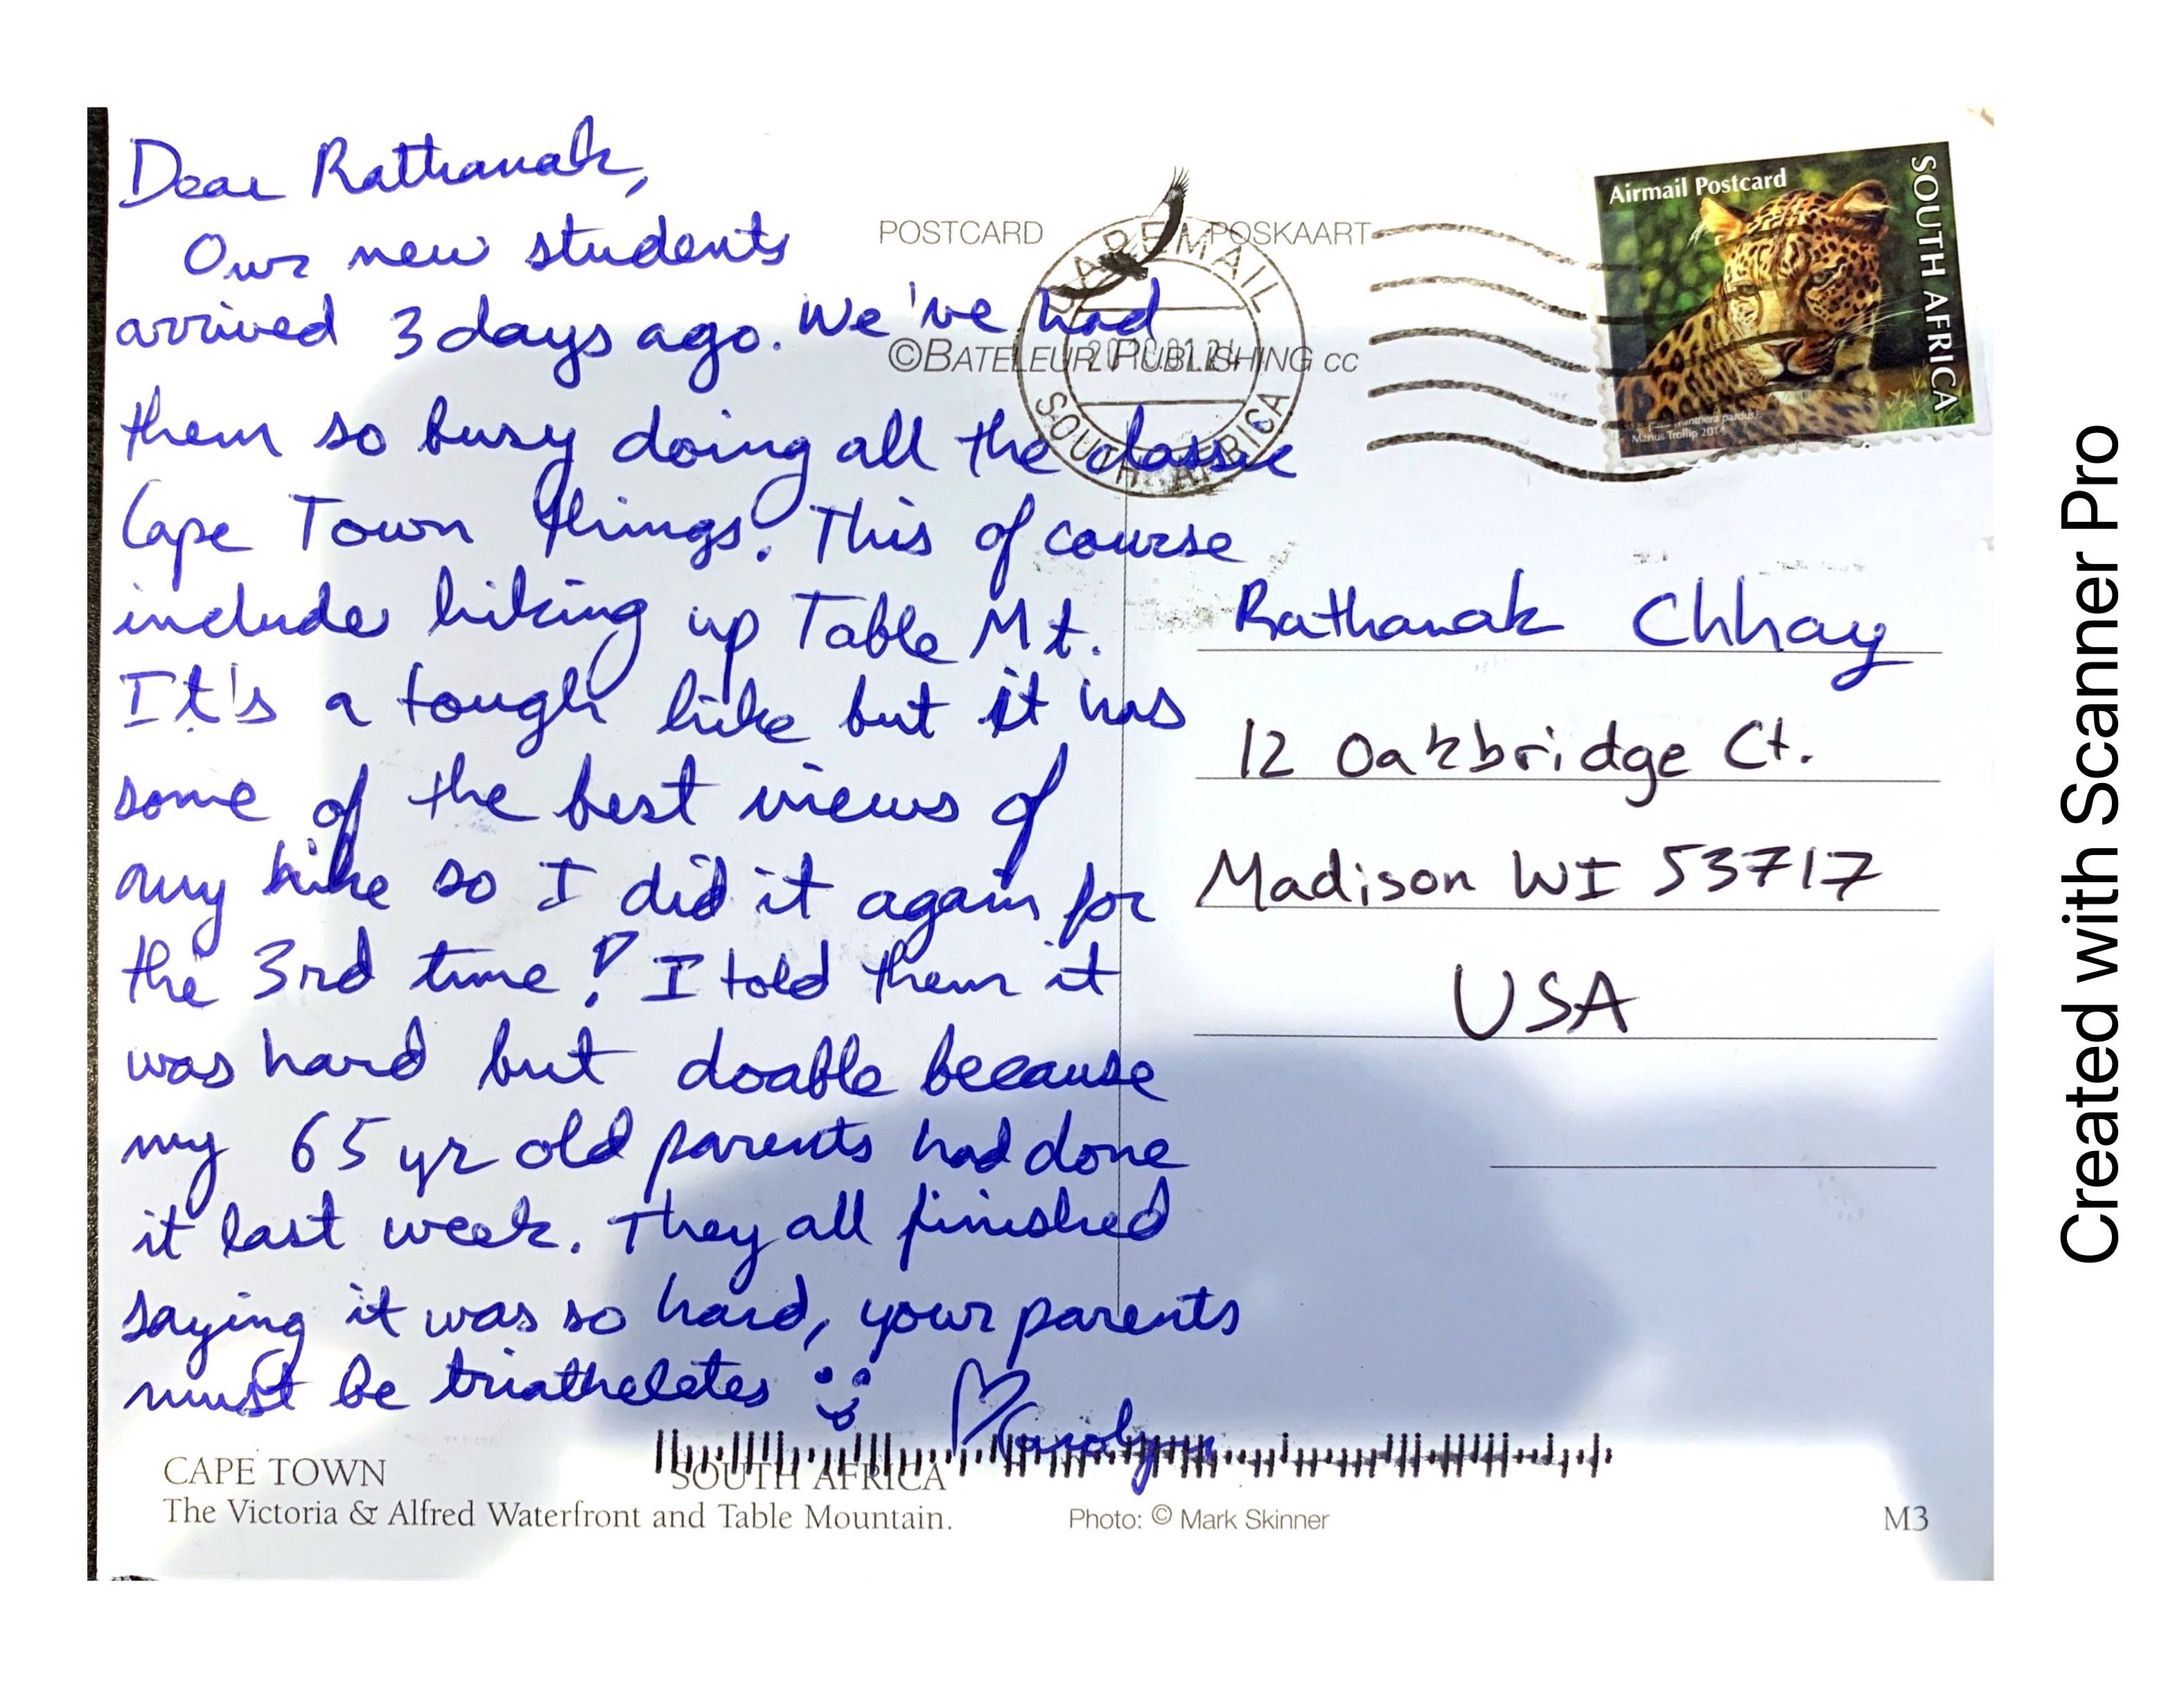 Dear Rathanak,
Our new students
arrived 3 days ago. We've had
them so busy doing all the classic
Cape Town things. This of course
includes hiking up Table Mt.
It's a tough hike but it has
some of the best views of
any hike so I did it again for
the 3rd time! I told them it
was hard but doable because
my 65 yr old parents had done
it last week. They all finished
saying it was so hard, your parents
must be triatheletes
♡ Carolyn
POSTCARD
POSKAART
©BATELEUR PUBLISHING CC
CAPE MAIL
SOUTH AFRICA
Airmail Postcard
SOUTH AFRICA
(Panthera pardus)
Marius Trollip 2014
Rathanak Chhay
12 Oakbridge Ct.
Madison WI 53717
USA
CAPE TOWN SOUTH AFRICA
The Victoria & Alfred Waterfront and Table Mountain.
Photo: © Mark Skinner
M3
Created with Scanner Pro